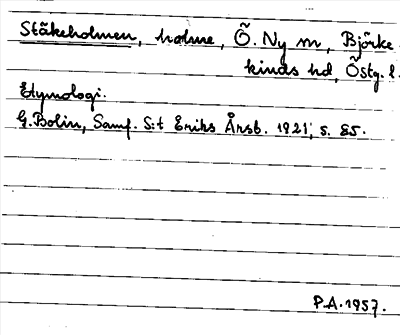 Ståkeholmen, holme, Ö. Ny sn, Björke-
kinds hd, Östg. l.
Etymologi:
G. Bolin, Samf. S:t Eriks Årsb. 1921, s. 85.
P.A. 1957.